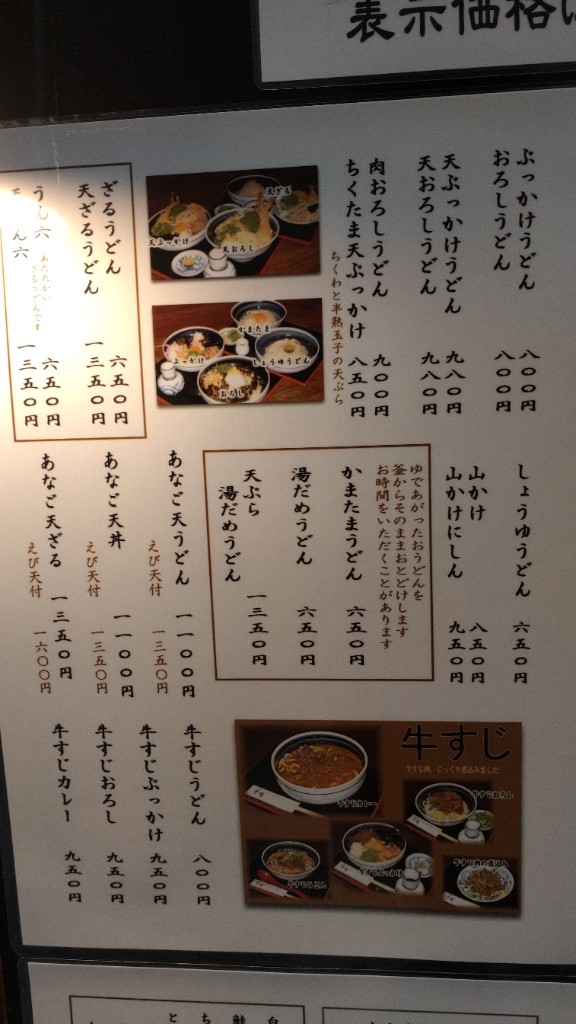 表示価格は
ぶっかけうどん 八〇〇円
おろしうどん 八〇〇円
天ぶっかけうどん 九八〇円
天おろしうどん 九八〇円
肉おろしうどん 九〇〇円
ちくたま天ぶっかけ 八五〇円
ちくわと半熟玉子の天ぷら
天ざる
天ぶっかけ
天おろし
かまたま
ぶっかけ
しょうゆうどん
おろし
ざるうどん 六五〇円
天ざるうどん 一三五〇円
うん六 六五〇円
あたたかい
ざるうどんです
天うん六 一三五〇円
しょうゆうどん 六五〇円
山かけ 八五〇円
山かけにしん 九五〇円
ゆであがったおうどんを
釜からそのままおとどけします
お時間をいただくことがあります
かまたまうどん 六五〇円
湯だめうどん 六五〇円
天ぷら
湯だめうどん 一三五〇円
あなご天うどん 一一〇〇円
えび天付 一三五〇円
あなご天丼 一一〇〇円
えび天付 一三五〇円
あなご天ざる 一三五〇円
えび天付 一六〇〇円
牛すじ
牛すじ肉、じっくり煮込みました
牛すじカレー
牛すじおろし
牛すじうどん
牛すじぶっかけ
牛すじ肉の煮込み
牛すじうどん 八〇〇円
牛すじぶっかけ 九五〇円
牛すじおろし 九五〇円
牛すじカレー 九五〇円